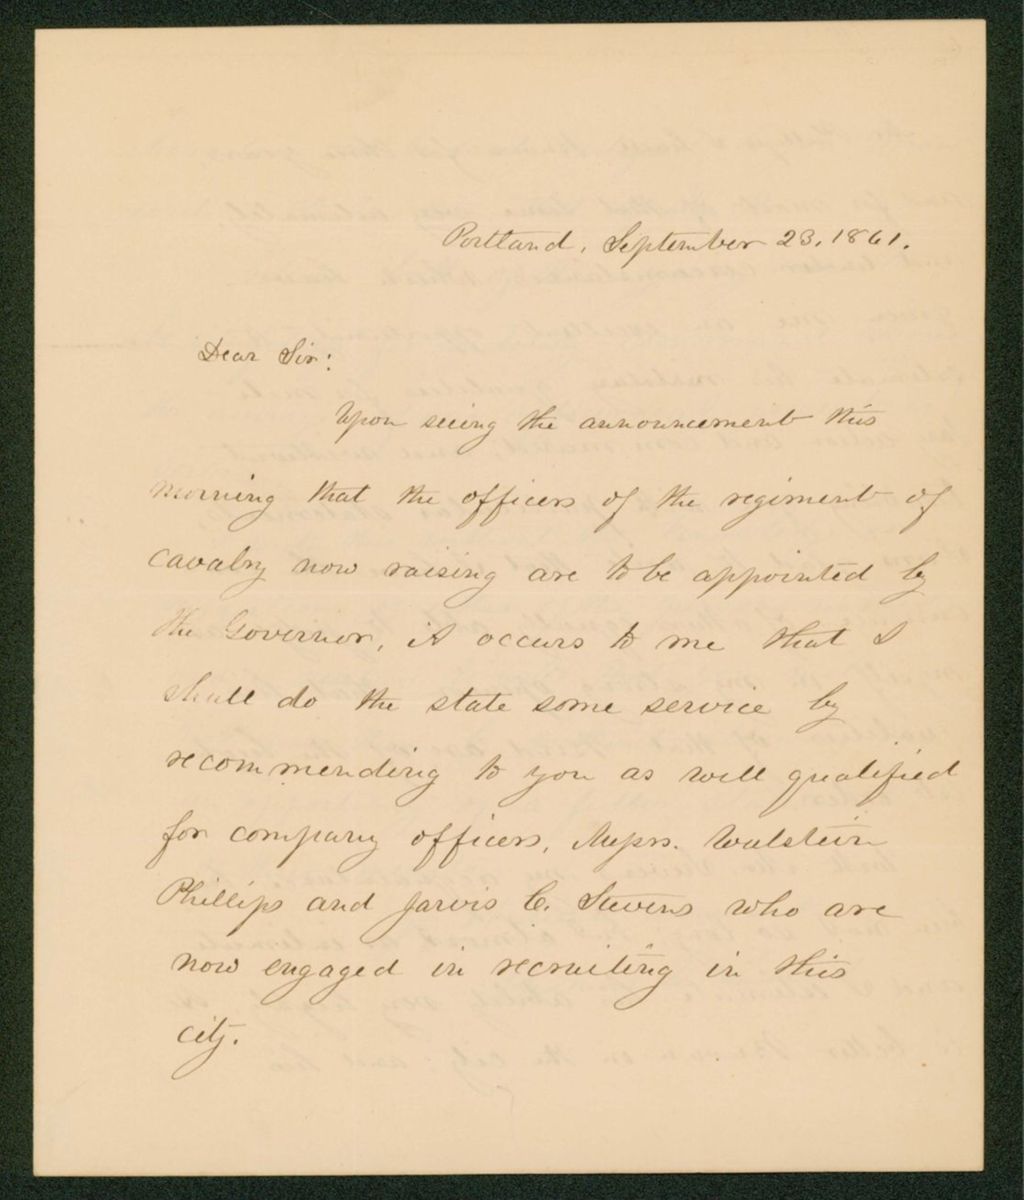 Portland, September 23, 1861.
Dear Sir:
Upon seeing the announcement this
morning that the officers of the regiment of
cavalry now raising are to be appointed by
the Governor, it occurs to me that I
shall do the state some service by
recommending to you as well qualified
for company officers, Messrs. Walstein
Phillips and Jarvis C. Stevens who are
now engaged in recruiting in this
city.